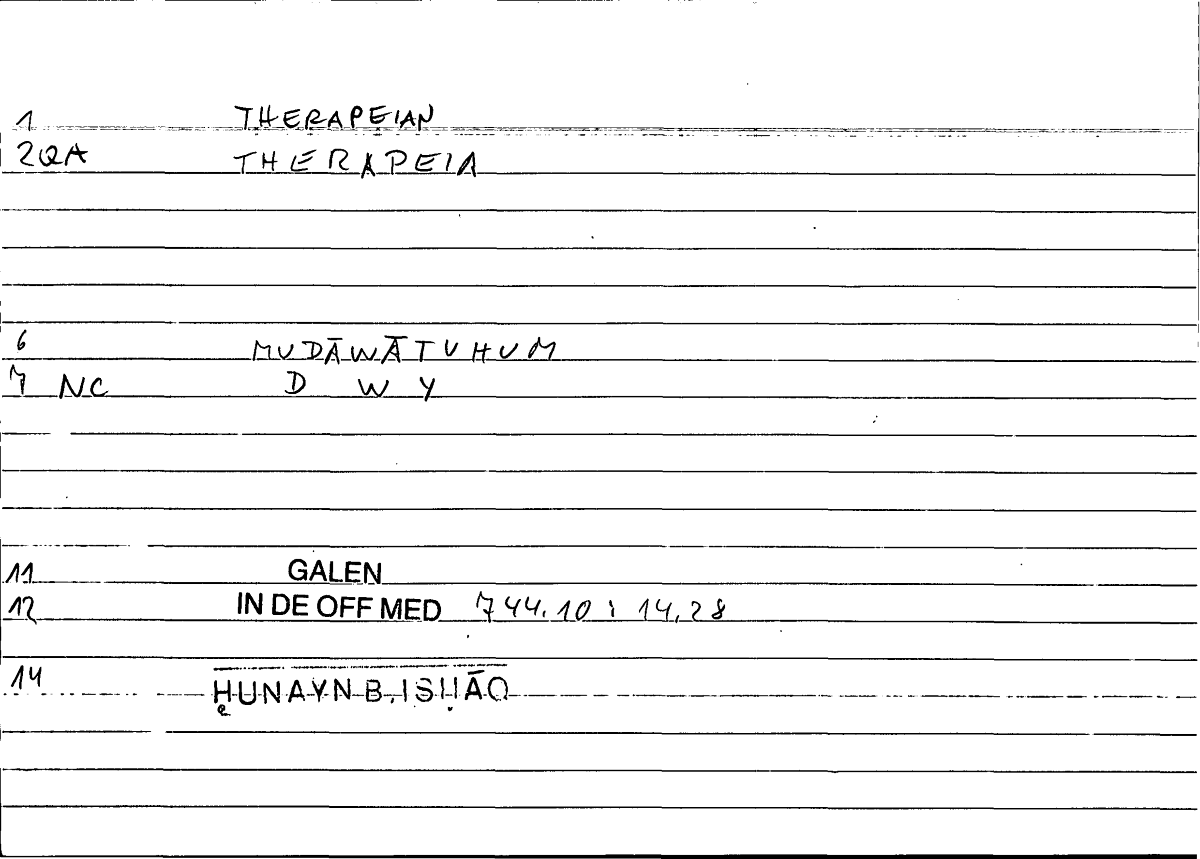 1 THERAPEIAN
2QA THERAPEIA
6 MUDĀWĀTUHUM
7 NC D W Y
11 GALEN
12 IN DE OFF MED 744.10 : 14,28
14 ḤUNAYN B. ISḤĀQ